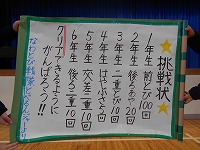 挑戦状
1年生 前とび100回
2年生 後ろあや20回
3年生 交差とび10回
4年生 はやぶさ5回
5年生 二重とび10回
6年生 後ろ二重10回
クリアできるように
がんばろう!!